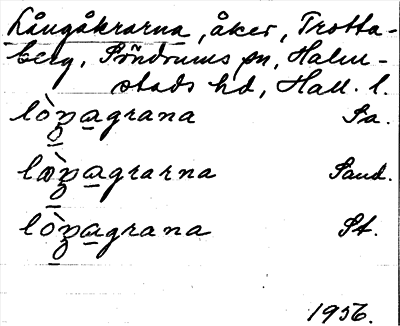 Långåkrarna, åker, Trotta-
berg, Söndrums sn, Halm-
stads hd, Hall. l.
lòŋagrana Sa.
læ̀ŋagrarna Sand.
lòŋagrana St.
1956.